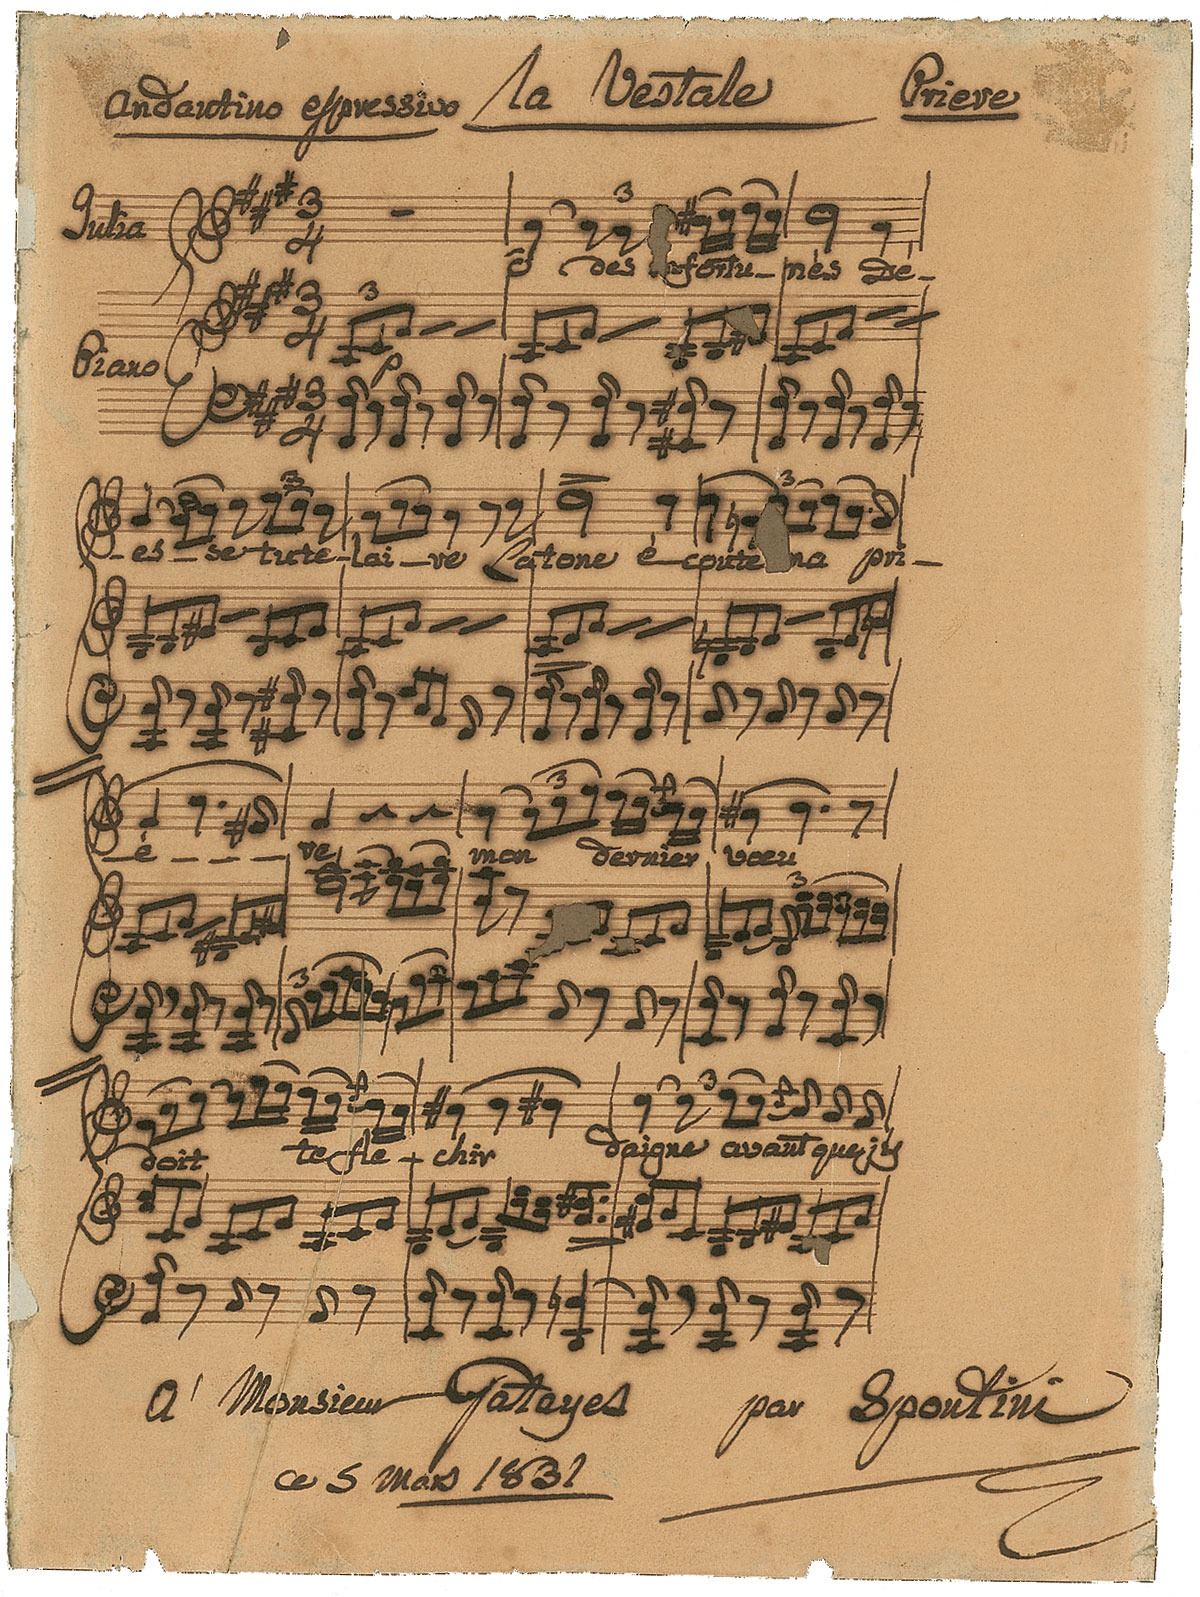 Andantino espressivo la Vestale Prière
Julia
ô des infortu_nés Dé_
Piano
p
_es_se tute_lai_re Latone é_coute ma pri_
_è____re mon dernier vœu
doit te flé_chir daigne avant que j'y
A' Monsieur Gatayes par Spontini
ce 5 mars 1831